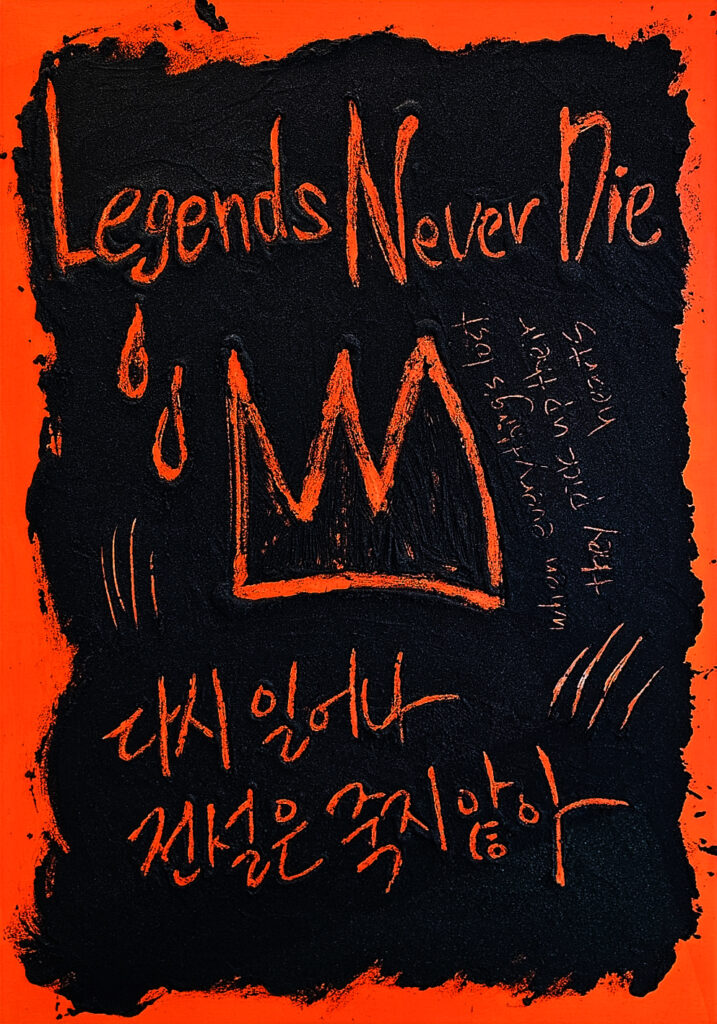 Legends Never Die
when everything's lost
they pick up their
hearts
다시 일어나
전설은 죽지 않아